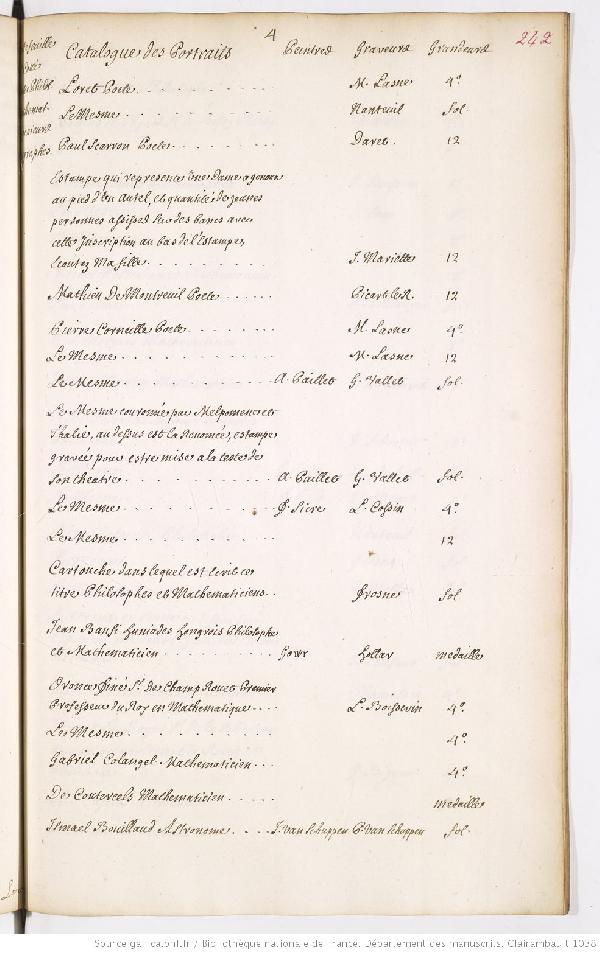 4
242
Catalogue des Portraits Peintres Graveurs Grandeurs
Loret Poete . . . . . . . . . . M. Lasne 4º
Le Mesme . . . . . . . . . . Nanteuil fol.
Paul Scarron Poete . . . . . . . . Daret. 12
Estampe qui represente Une Dame a genoux
au pied d'un Autel, et quantité de jeunes
personnes assises sur des bancs avec
cette Inscription au bas de l'Estampe,
Ecoutez Ma fille . . . . . . . . . J. Mariette 12
Mathieu De Montreuil Poete . . . . . . Picart le R. 12
Pierre Corneille Poete . . . . . . . . M. Lasne 4º
Le Mesme . . . . . . . . . . M. Lasne 12
Le Mesme . . . . . . . . . . A. Paillet G. Vallet fol.
Le Mesme couronné par Melpomene et
Thalie, au dessus est la Renomée, estampe
gravée pour estre mise a la teste de
son theatre . . . . . . . . . A. Paillet G. Vallet fol.
Le Mesme . . . . . . . . . . F. Sicre L. Cossin 4º
Le Mesme . . . . . . . . . . 12
Cartouche dans lequel est écrit ce
titre Philosophes et Mathematiciens . . Frosne fol
Jean Banfi Huniades Hongrois Philosophe
et Mathematicien . . . . . . . . . Gowr Hollar medaille
Oronce Finé Sr. de Champ Rouet Premier
Professeur du Roy en Mathematique . . . . L. Boissevin 4º
Le Mesme . . . . . . . . . . 4º
Gabriel Colangel Mathematicien . . . 4º
De Contercels Mathematicien . . . . . medaille
Ismael Bouillaud Astronome . . . . J. van schuppen P. van schuppen fol.
Source gallica.bnf.fr / Bibliothèque nationale de France. Département des manuscrits. Clairambault 1038